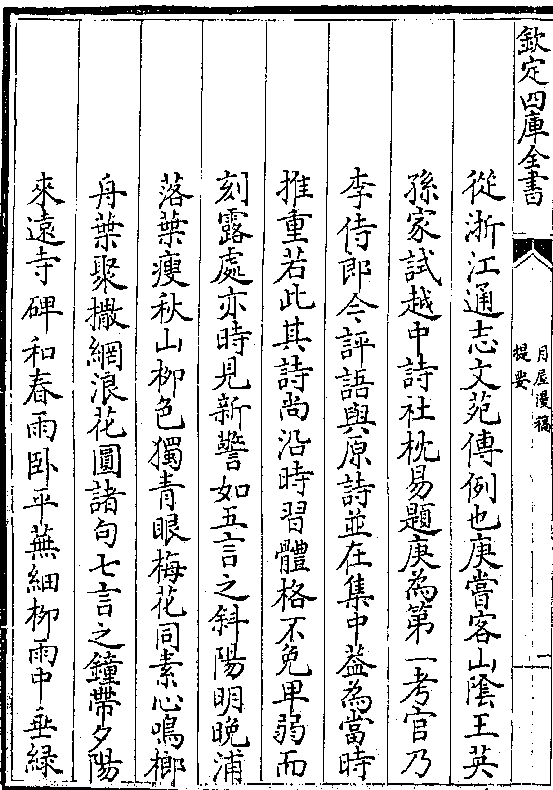 欽定四庫全書
月屋漫稿
提要
從浙江通志文苑傳例也庚嘗客山陰王英
孫家試越中詩社枕易題庚為第一考官乃
李侍郎今評語與原詩並在集中葢為當時
推重若此其詩尚沿時習體格不免卑弱而
刻露處亦時見新警如五言之斜陽明晚浦
落葉瘦秋山柳色獨青眼梅花同素心鳴榔
舟葉聚撒網浪花圓諸句七言之鐘帶夕陽
來遠寺碑和春雨卧平蕪細柳雨中垂緑